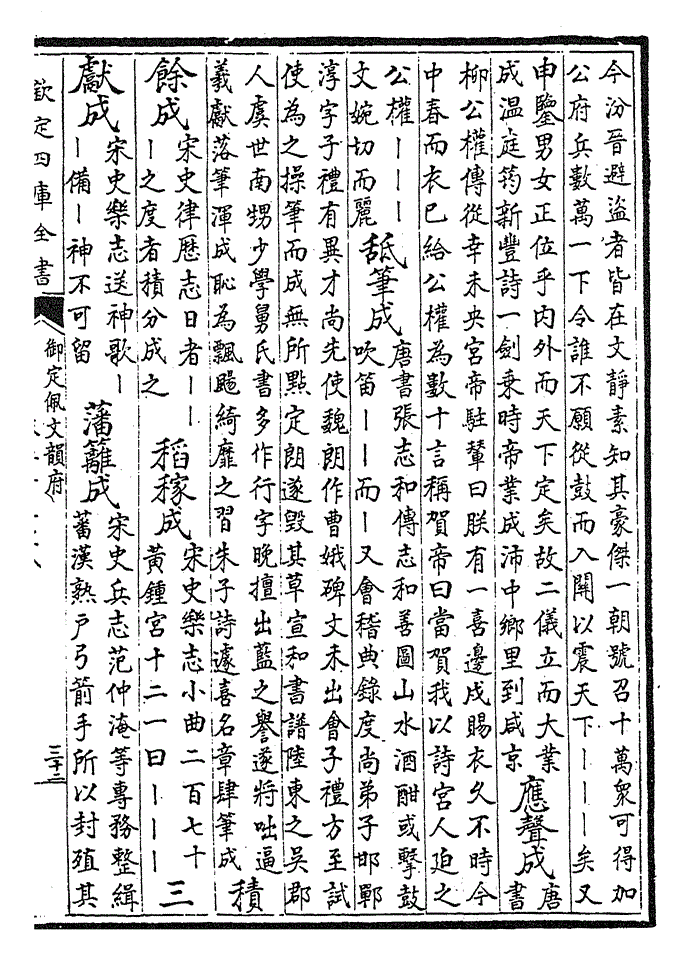 今汾晉避盜者皆在文靜素知其豪傑一朝號召十萬衆可得加
公府兵數萬一下令誰不願從鼓而入關以震天下｜｜｜矣又
申鑒男女正位乎内外而天下定矣故二儀立而大業
成温庭筠新豐詩一劍乗時帝業成沛中鄉里到咸京
應聲成
唐
書
柳公權傳從幸未央宮帝駐輦曰朕有一喜邊戍賜衣久不時今
中春而衣已給公權為數十言稱賀帝曰當賀我以詩宮人迫之
公權｜｜｜
文婉切而麗
舐筆成
唐書張志和傳志和善圖山水酒酣或擊鼓
吹笛｜｜而｜又會稽典錄度尚弟子邯鄲
淳字子禮有異才尚先使魏朗作曹娥碑文未出會子禮方至試
使為之操筆而成無所點定朗遂毁其草宣和書譜陸東之吳郡
人虞世南甥少學舅氏書多作行字晚擅出藍之譽遂將咄逼
羲獻落筆渾成恥為飄颺綺靡之習朱子詩遽喜名章肆筆成
積
餘成
宋史律歴志日者｜｜
｜之度者積分成之
稻稼成
宋史樂志小曲二百七十
黄鍾宮十二一曰｜｜｜
三
獻成
宋史樂志送神歌｜
｜備｜神不可留
藩籬成
宋史兵志范仲淹等專務整緝
蕃漢熟戶弓箭手所以封殖其
欽定四庫全書
御定佩文韻府
三十二